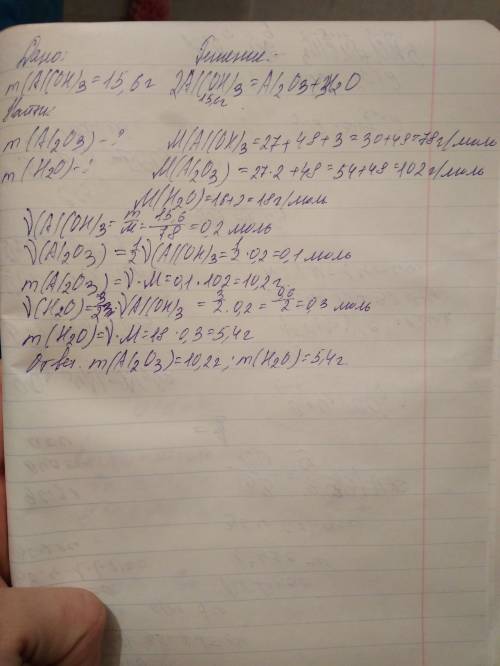 Дано: Решение:
m(Al(OH)3=15,6г 2Al(OH)3=Al2O3+3H2O
15,6г
Найти:
m(Al2O3)-? M(Al(OH)3=27+48+3=30+48=78г/моль
m(H2O)-? M(Al2O3)=27·2+48=54+48=102г/моль
M(H2O)=16+2=18г/моль
ν(Al(OH)3=m/M=15,6/78=0,2 моль
ν(Al2O3)=1/2ν(Al(OH)3=1/2·0,2=0,1моль
m(Al2O3)=ν·M=0,1·102=10,2г
ν(H2O)=3/2·ν(Al(OH)3=3/2·0,2=0,6/2=0,3 моль
m(H2O)=ν·M=18·0,3=5,4г
Ответ: m(Al2O3)=10,2г; m(H2O)=5,4г